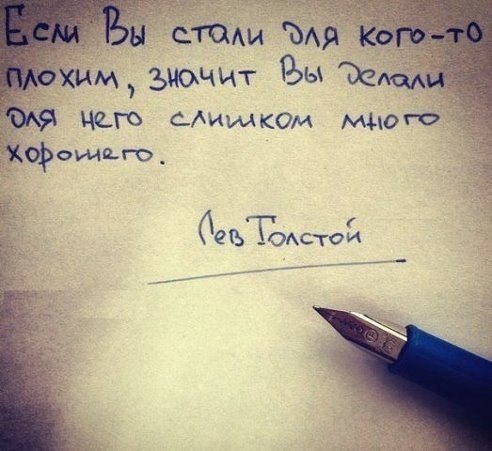 Если Вы стали для кого-то
плохим, значит Вы делали
для него слишком много
хорошего.
Лев Толстой